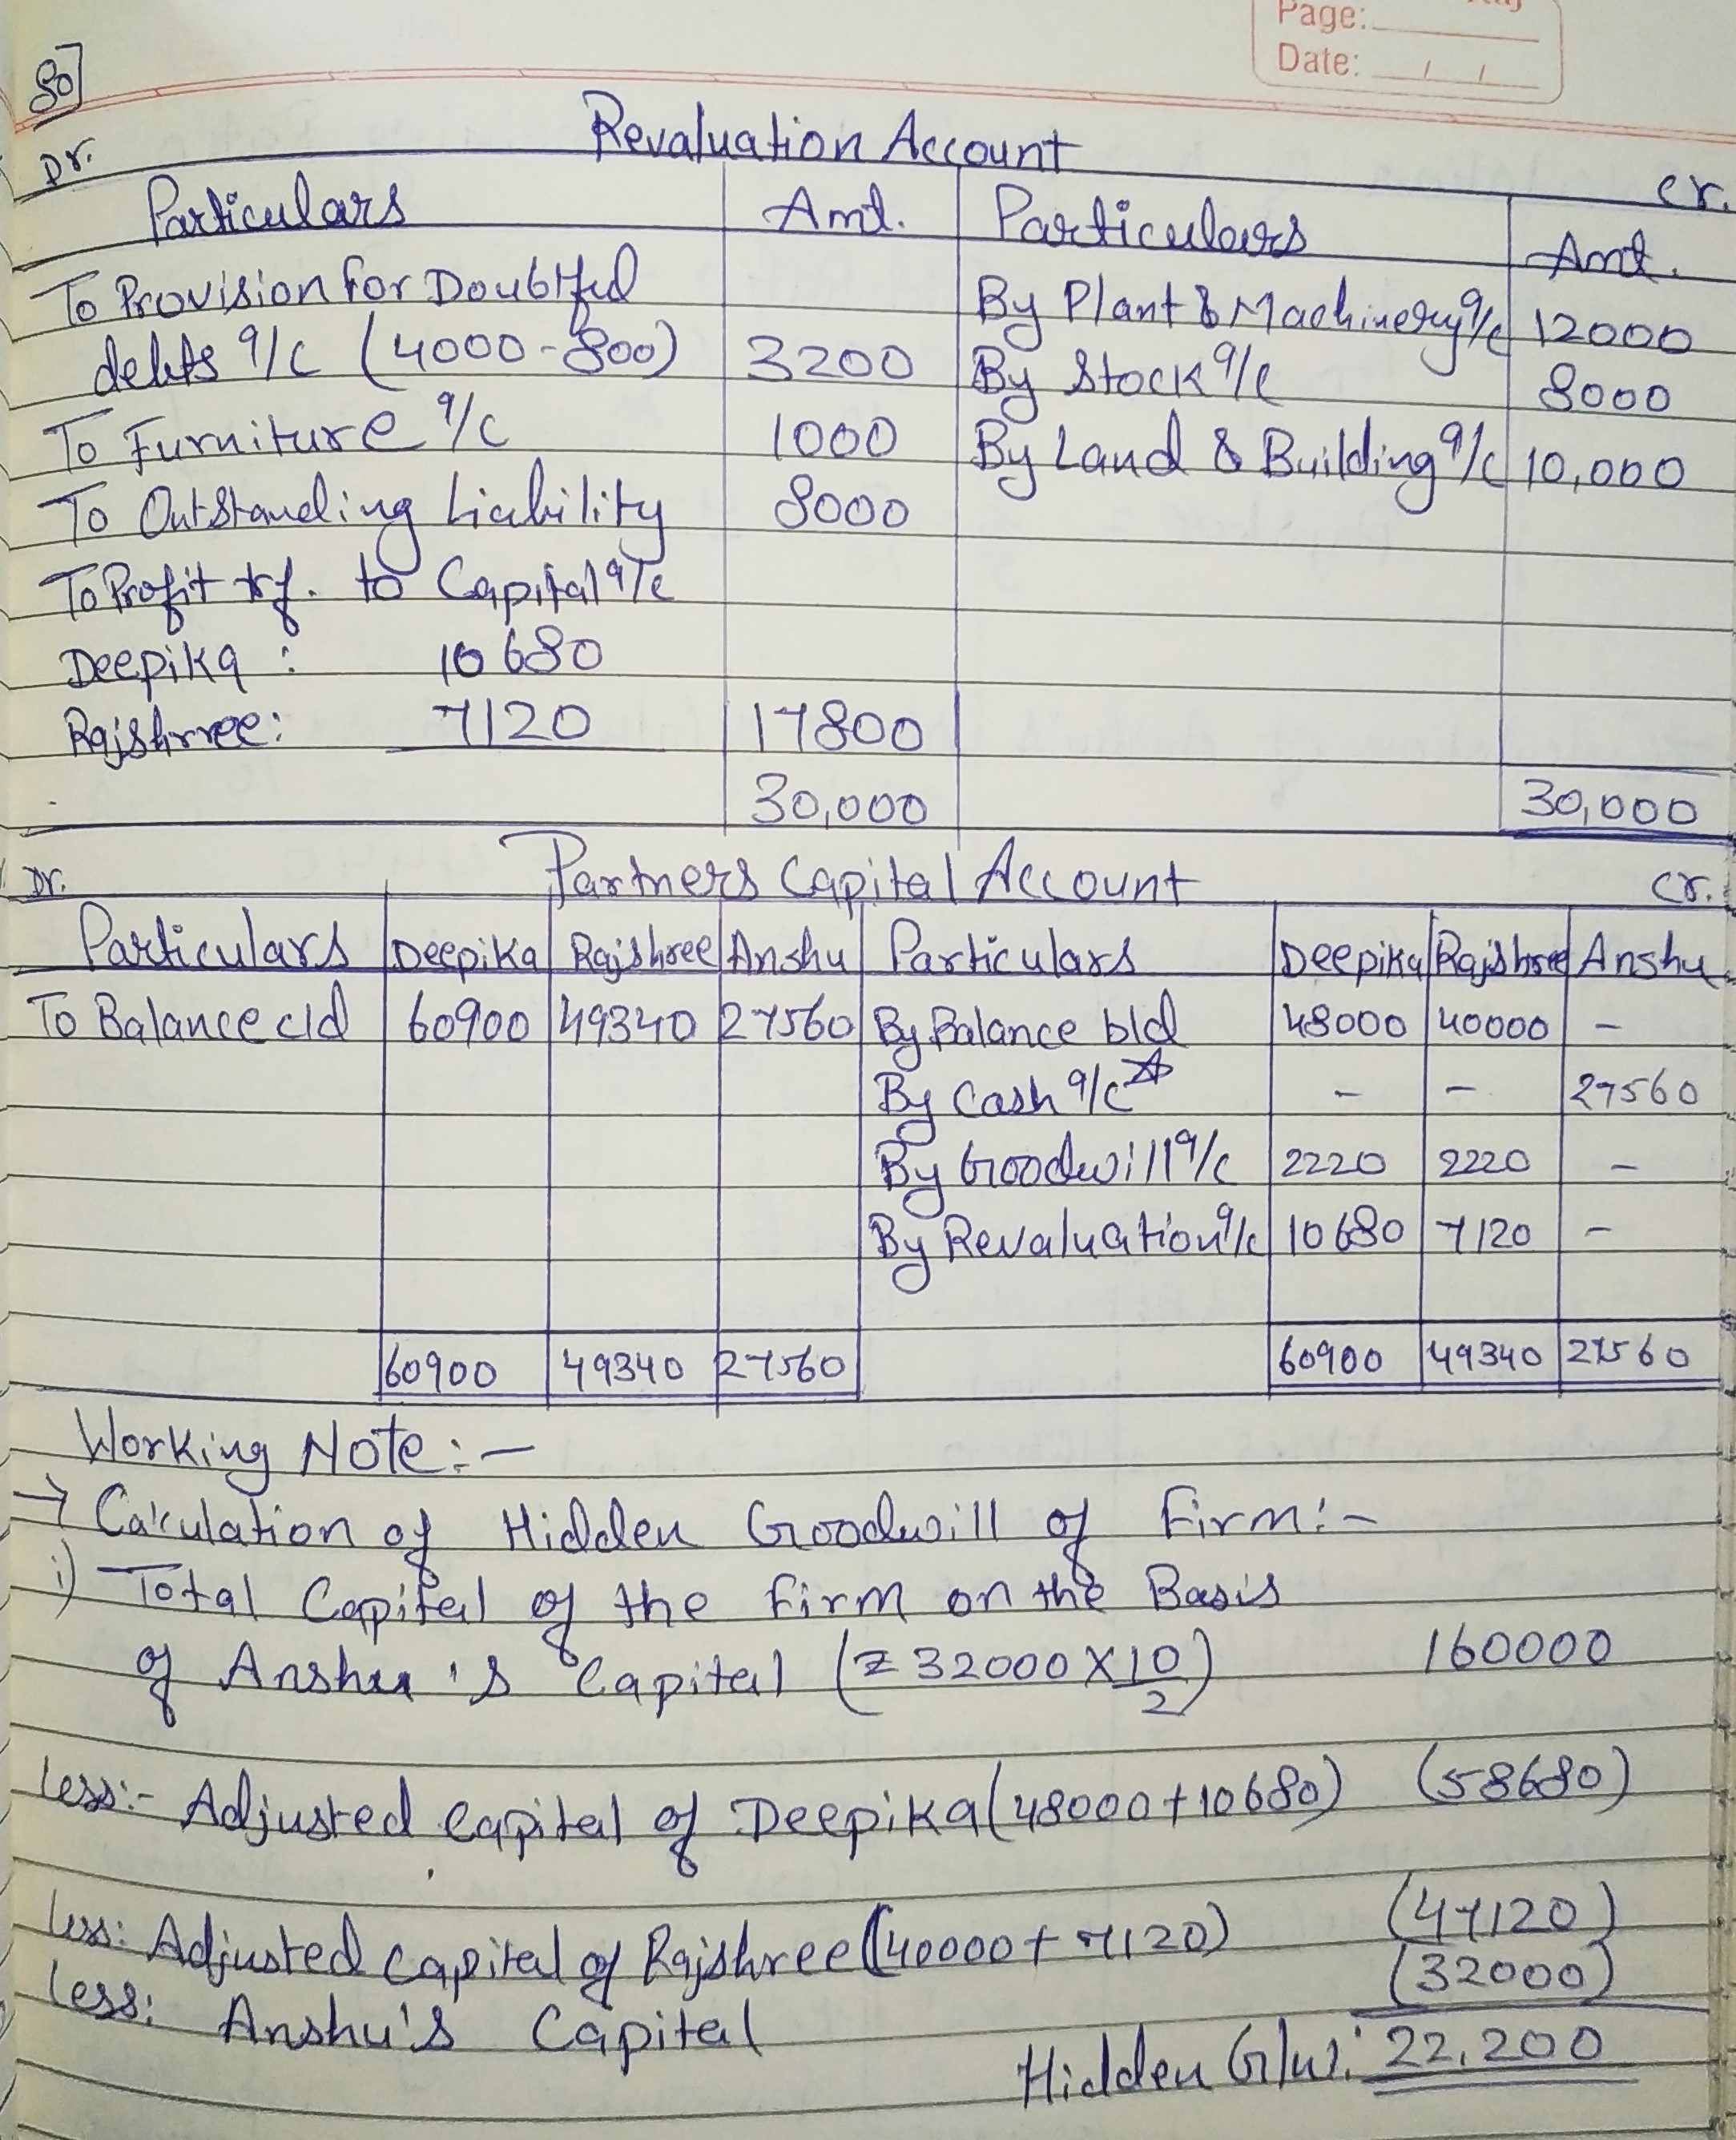 Page:
Date: / /
80]
Revaluation Account
Dr. Cr.
Particulars Amt. Particulars Amt.
To Provision for Doubtful By Plant & Machinery a/c 12000
debts a/c (4000-800) 3200 By Stock a/c 8000
To Furniture a/c 1000 By Land & Building a/c 10,000
To Outstanding Liability 8000
To Profit trf. to Capital a/c
Deepika : 10680
Rajshree: 7120 17800
30,000 30,000
Partners Capital Account
Dr. Cr.
Particulars Deepika Rajshree Anshu Particulars Deepika Rajshree Anshu
To Balance c/d 60900 49340 27560 By Balance b/d 48000 40000 –
By Cash a/c☆ – – 27560
By Goodwill a/c 2220 2220 –
By Revaluation a/c 10680 7120 –
60900 49340 27560 60900 49340 27560
Working Note:-
→ Calculation of Hidden Goodwill of Firm:-
i) Total Capital of the Firm on the Basis
of Anshu's Capital (₹32000 X 10/2) 160000
Less:- Adjusted Capital of Deepika (48000+10680) (58680)
Less: Adjusted Capital of Rajshree (40000+7120) (47120)
Less: Anshu's Capital (32000)
Hidden G/w: 22,200